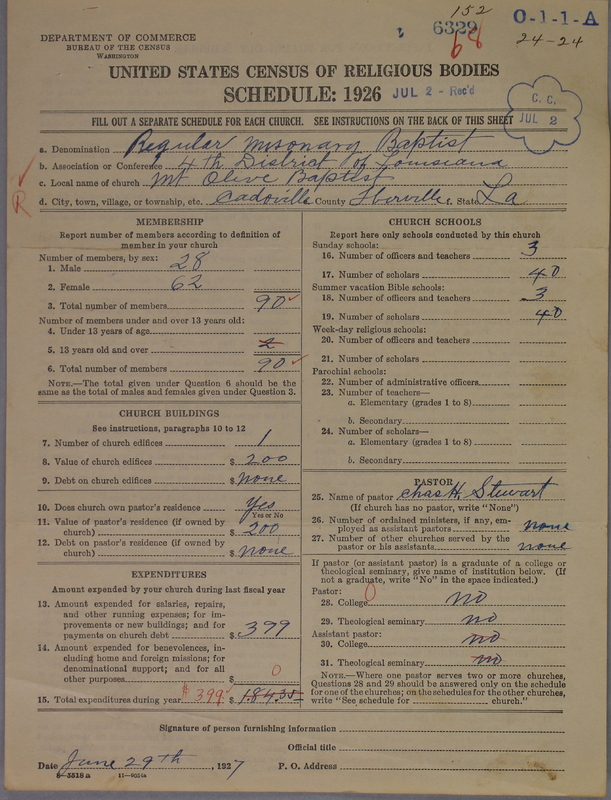 152
6329
68
O-1-1-A
24-24
DEPARTMENT OF COMMERCE
BUREAU OF THE CENSUS
WASHINGTON
UNITED STATES CENSUS OF RELIGIOUS BODIES
SCHEDULE: 1926
JUL 2 - Rec'd
C. C.
JUL 2
FILL OUT A SEPARATE SCHEDULE FOR EACH CHURCH. SEE INSTRUCTIONS ON THE BACK OF THIS SHEET
a. Denomination Regular Missonary Baptist
b. Association or Conference 4th District of Louisiana
c. Local name of church Mt Olive Baptist
R
d. City, town, village, or township, etc. Cadoville County Iberville f. State La
MEMBERSHIP
Report number of members according to definition of
member in your church
Number of members, by sex:
1. Male 28
2. Female 62
3. Total number of members 90
Number of members under and over 13 years old:
4. Under 13 years of age
5. 13 years old and over 2
6. Total number of members 90
NOTE.—The total given under Question 6 should be the
same as the total of males and females given under Question 3.
CHURCH BUILDINGS
See instructions, paragraphs 10 to 12
7. Number of church edifices 1
8. Value of church edifices $ 200
9. Debt on church edifices $ none
10. Does church own pastor's residence Yes
Yes or No
11. Value of pastor's residence (if owned by
church) $ 200
12. Debt on pastor's residence (if owned by
church) $ none
EXPENDITURES
Amount expended by your church during last fiscal year
13. Amount expended for salaries, repairs,
and other running expenses; for im-
provements or new buildings; and for
payments on church debt $ 399
14. Amount expended for benevolences, in-
cluding home and foreign missions; for
denominational support; and for all
other purposes $ 0
15. Total expenditures during year $399 $ 184.35
CHURCH SCHOOLS
Report here only schools conducted by this church
Sunday schools:
16. Number of officers and teachers 3
17. Number of scholars 40
Summer vacation Bible schools:
18. Number of officers and teachers 3
19. Number of scholars 40
Week-day religious schools:
20. Number of officers and teachers
21. Number of scholars
Parochial schools:
22. Number of administrative officers
23. Number of teachers—
a. Elementary (grades 1 to 8)
b. Secondary
24. Number of scholars—
a. Elementary (grades 1 to 8)
b. Secondary
PASTOR
25. Name of pastor Chas H. Stewart
(If church has no pastor, write "None")
26. Number of ordained ministers, if any, em-
ployed as assistant pastors none
27. Number of other churches served by the
pastor or his assistants none
If pastor (or assistant pastor) is a graduate of a college or
theological seminary, give name of institution below. (If
not a graduate, write "No" in the space indicated.)
Pastor: 0
28. College no
29. Theological seminary no
Assistant pastor:
30. College no
31. Theological seminary no
NOTE.—Where one pastor serves two or more churches,
Questions 28 and 29 should be answered only on the schedule
for one of the churches; on the schedules for the other churches,
write "See schedule for church."
Signature of person furnishing information
Official title
Date June 29th, 1927 P. O. Address
8-5518 a